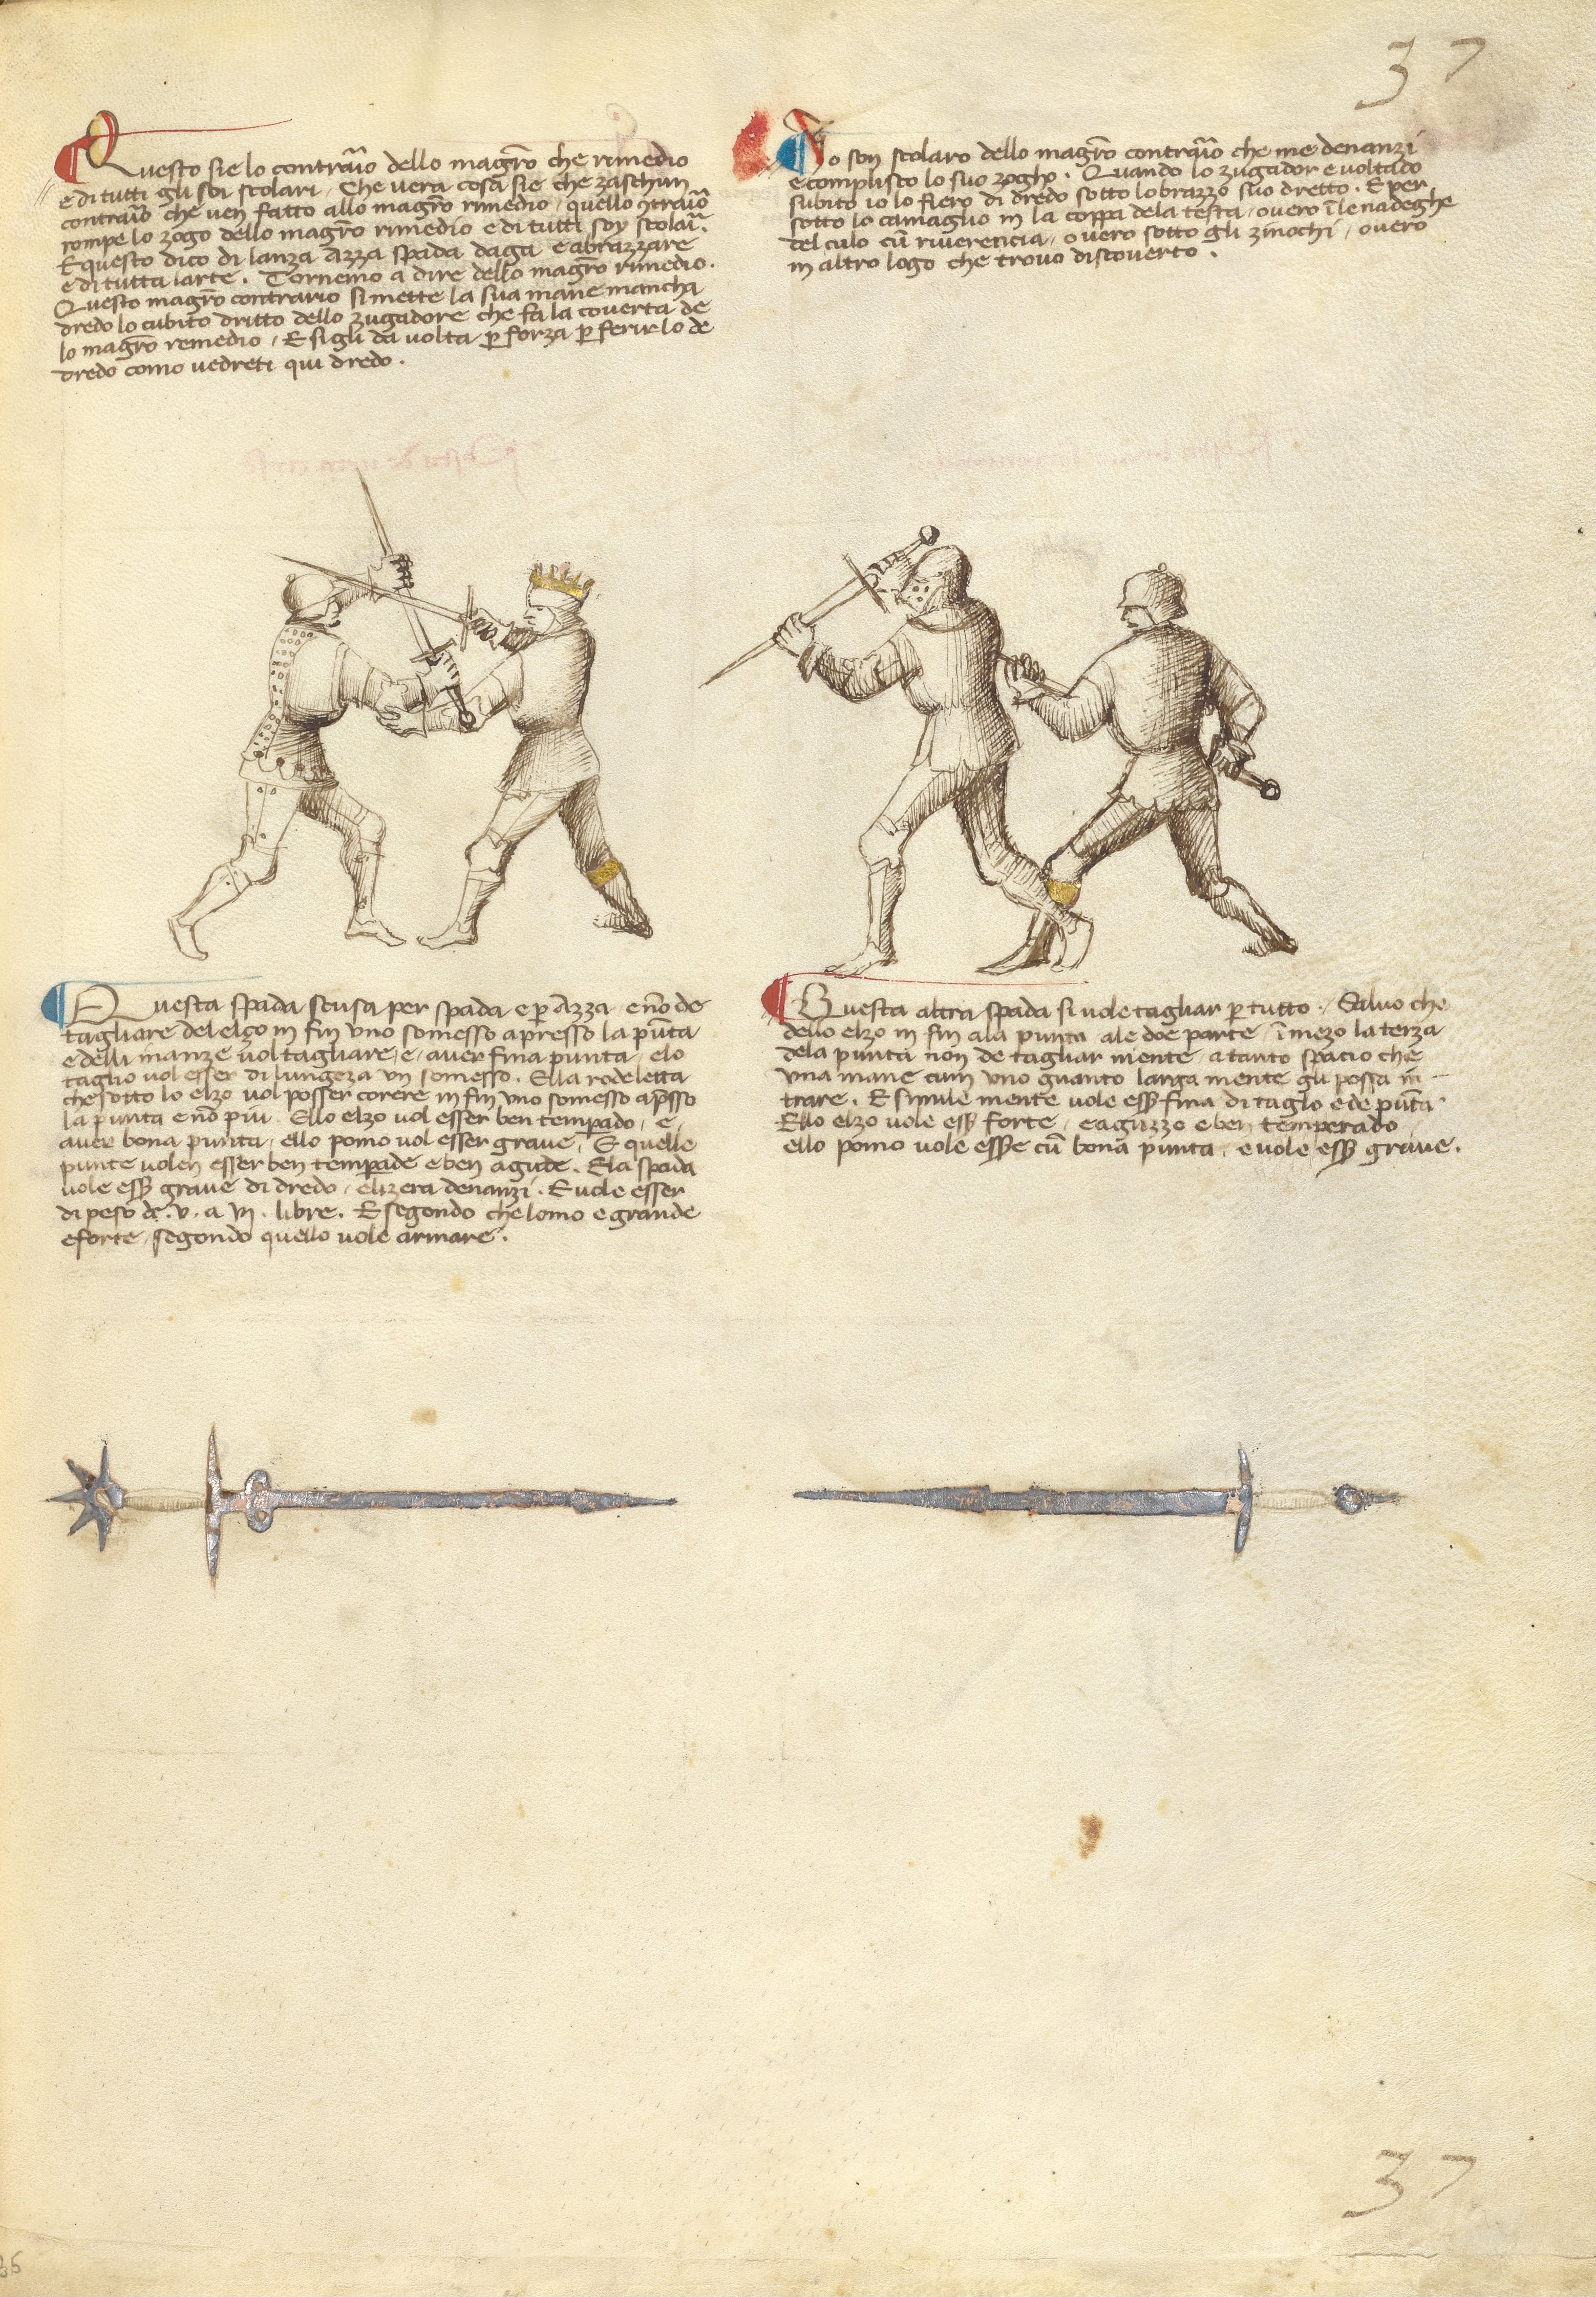 37
Questo sie lo contraīo dello magrō che rimedio
e di tutti gli soi scolari. Che vera cosa sie che zaschun
contraīo che ven fatto allo magrō rimedio, quello ɔtraīo
rompe lo zogo dello magrō rimedio e di tutti soy scolaī.
E questo dico di lanza Azza spada daga e abrazzare
e di tutta larte. Tornemo a dire dello magrō rimedio.
Questo magrō contrario si mette la sua mane mancha
dredo lo cubito dritto dello zugadore che fa la coverta de
lo magrō remedio, E si gli da volta ꝑ forza ꝑ ferirlo de
dredo como vedreti qui dredo.
Io son scolaro dello magrō contraīo che me denanzi
e complisco lo suo zogho. Quando lo zugador e voltado
subito io lo fiero di dredo sotto lo brazzo suo dretto. E per
sotto lo camaglio in la coppa dela testa, overo ī le nadeghe
del culo cū riverencia, overo sotto gli zinochi, overo
in altro logo che trovo discoverto.
Questa spada scusa per spada e ꝑ Azza e nō de
tagliare del elzo in fin uno somesso apresso la pūta
e delli inanze vol tagliare, e, aver fina punta, e lo
taglio vol esser di lungeza un somesso. Ella rodeletta
che sotto lo elzo vol posser corere in fin uno somesso apsso
la punta e nō piu. Ello elzo vol esser ben temꝑado, e,
aver bona punta, ello pomo vol esser grave, E quelle
punte volen esser ben temperade e ben agude. Ela spada
vole ess grave di dredo, e lizera denanzi. E vole esser
di peso de. v. a vij. libre. E segondo che lomo e grande
e forte, segondo quello vole armare.
Questa altra spada si vole tagliar ꝑ tutto. Salvo che
dello elzo in fin ala punta ale doe parte, ī mezo la terza
dela punta non de tagliar niente, a tanto spacio che
una mane cum uno guanto larga mente gli possa in
trare. E simile mente vole ess fina di taglo e de pūta
Ello elzo vole ess forte, e aguzzo e ben temperado
ello pomo vole esse cū bona punta, e vole ess grave.
37